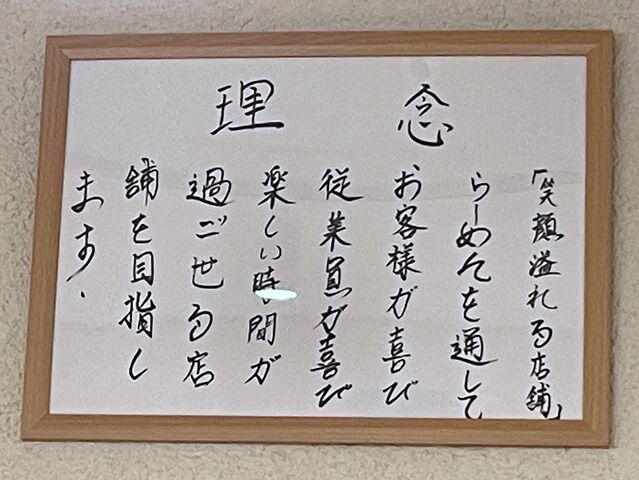 理念
「笑顔溢れる店舗」
らーめんを通して
お客様が喜び
従業員が喜び
楽しい時間が
過ごせる店
舗を目指し
ます.